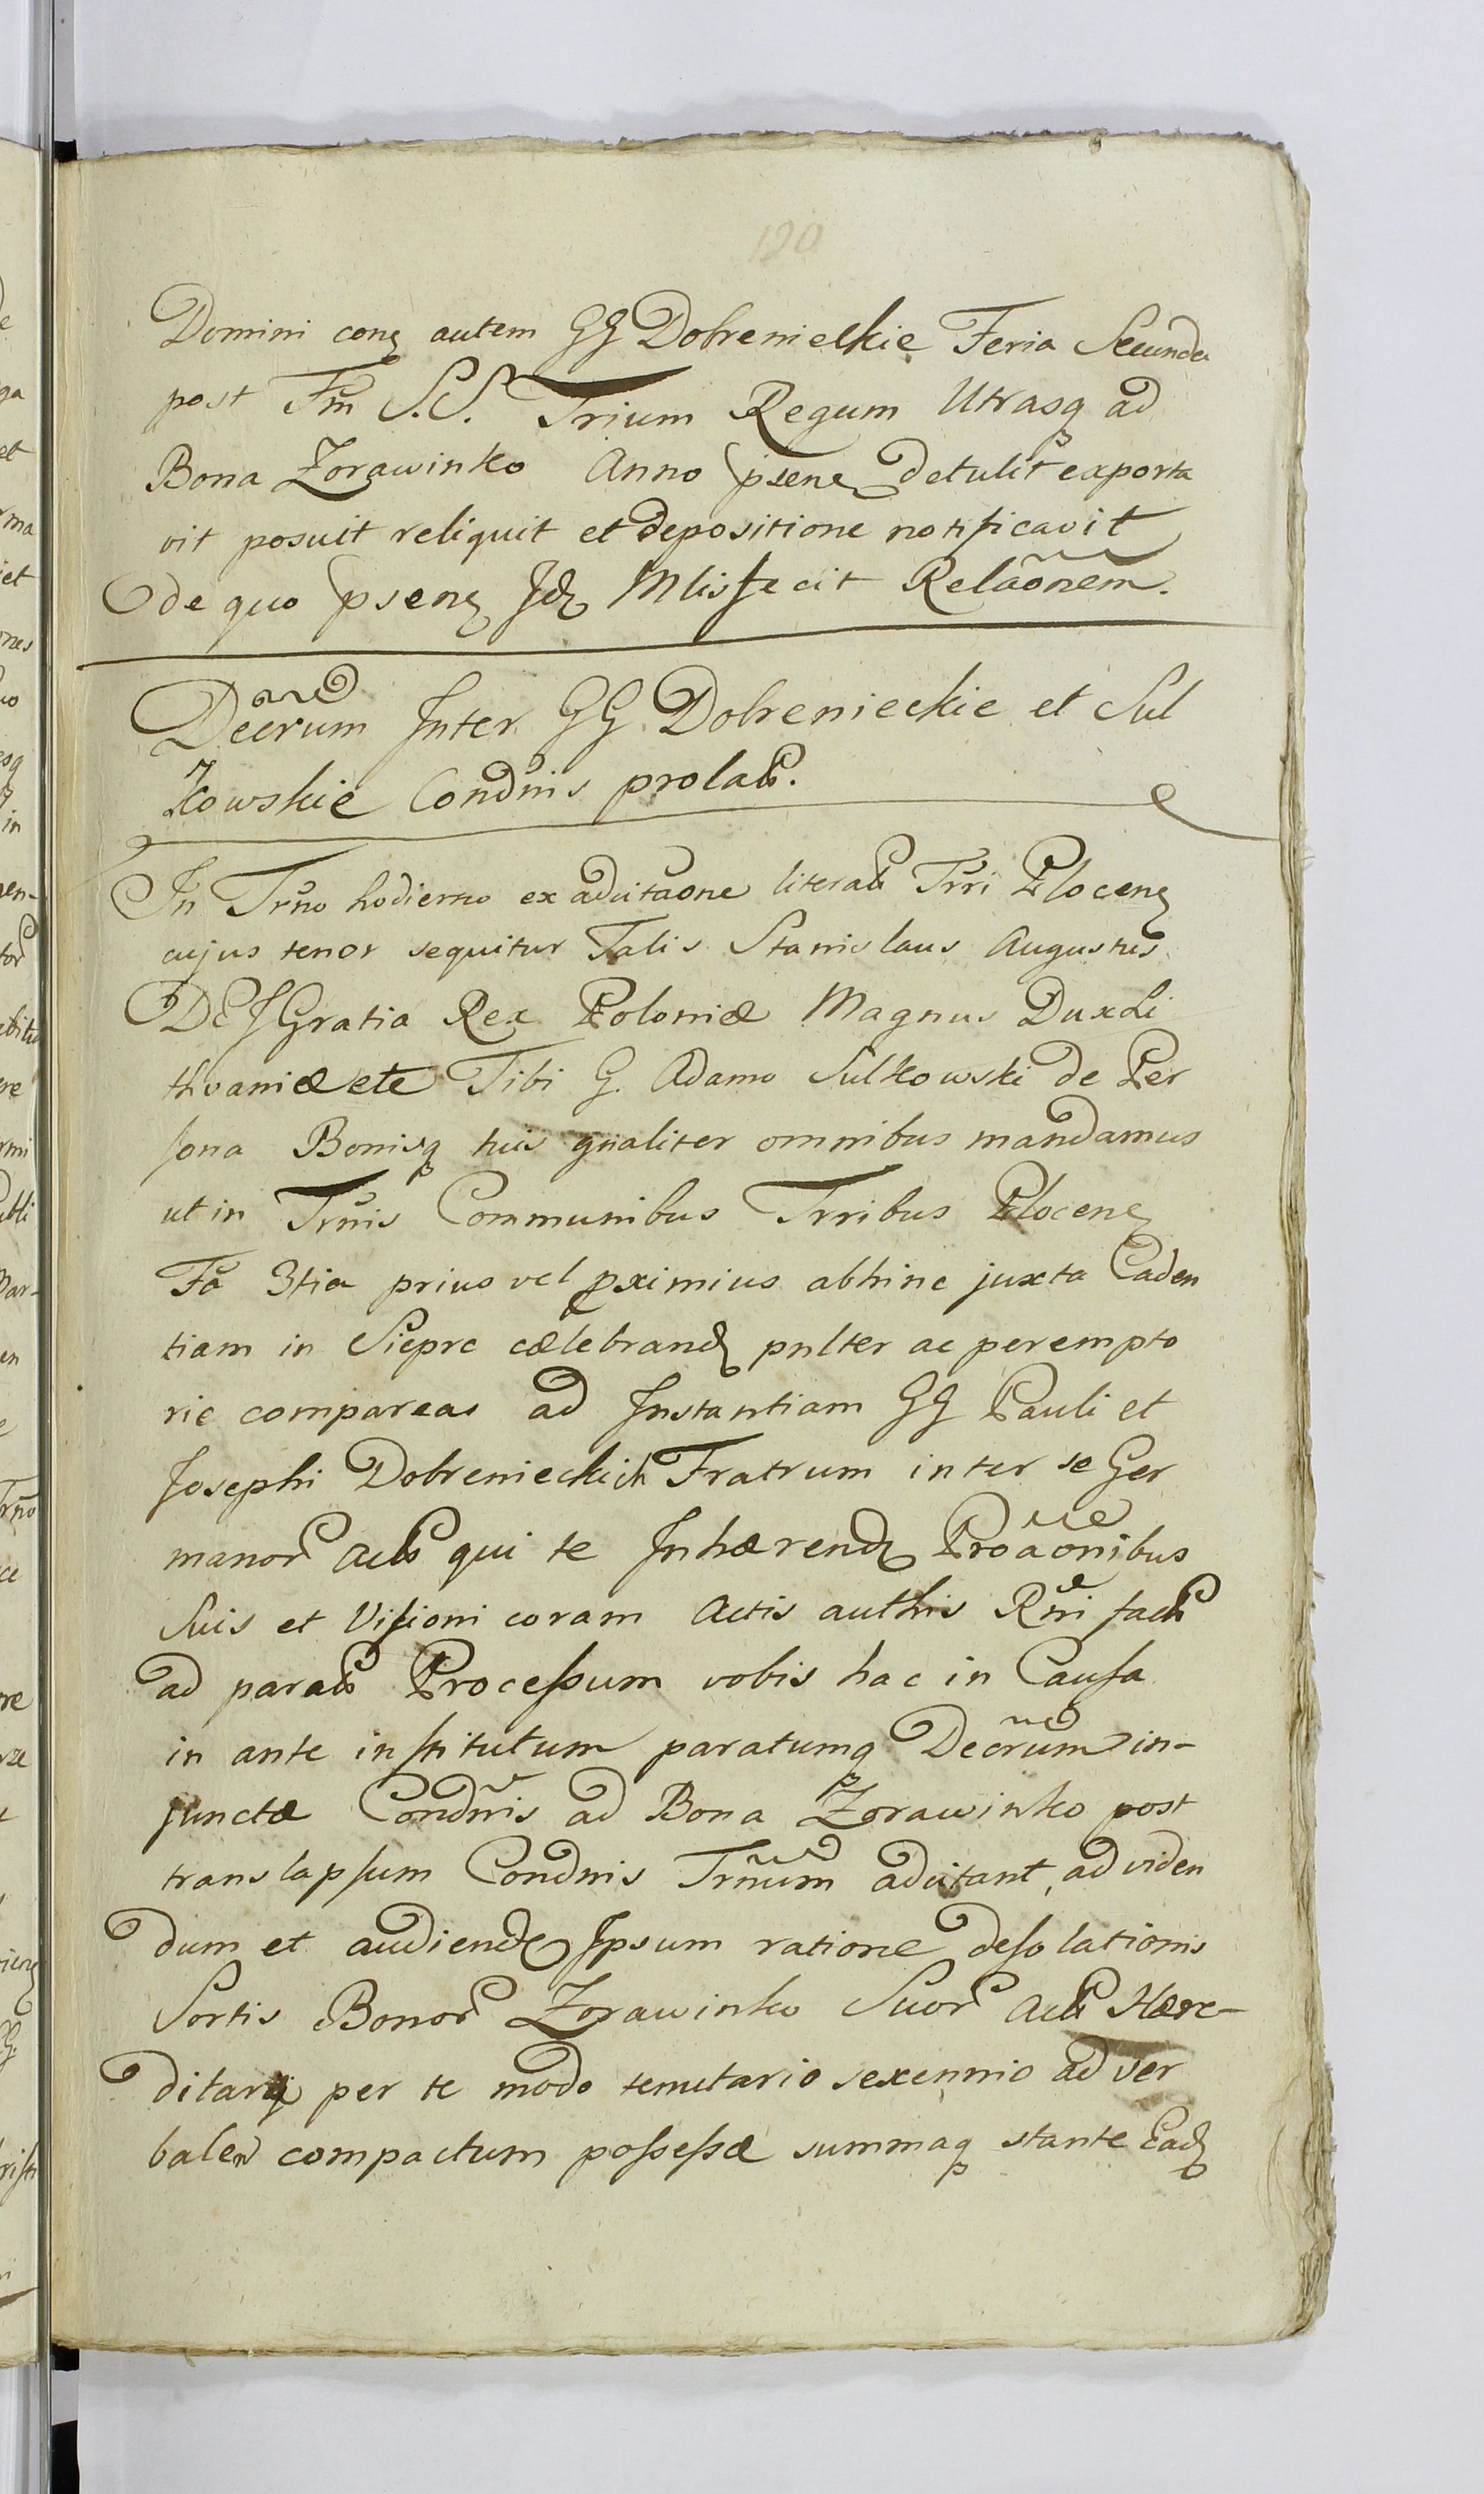 120
Domini conq autem GG Dobrenieckie Feria Secunda
post Fm S.S. Trium Regum Utrasq ad
Bona Zorawinko Anno psene detulit exporta
vit posuit reliquit et depositione notificavit
de quo pseng Jdq Mlis fecit Relãonem.
Decrum Inter GG Dobrenieckie et Sul
kowskie Condnis prolat.
In Trno hodierno ex adcitãone literat Trri Ploceng
cujus tenor sequitur Talis Stanislaus Augustus
DEJ Gratia Rex Poloniæ Magnus Dux Li
thvaniæ etc Tibi G. Adamo Sulkowski de Per
sona Bonisq tuis gnaliter omnibus mandamus
ut in Trnis Communibus Trribus Plocene
Fã 3tia prius vel pximius abhinc juxta Caden
tiam in Siepre cælebrandq pnlter ac perempto
rie compareas ad Instantiam GG Pauli et
Josephi Dobrenieckich Fratrum inter se Ger
manor Act qui te Inhærendq Proãonibus
Suis et Visioni coram Actis authis Rni fact
ad parat Processum vobis hac in Causa
in ante institutum paratumq Decrum in-
junctæ Condnis ad Bona Zorawinko post
translapsum Condnis Trnum adcitant, ad viden
dum et audiendq Ipsum ratione desolationis
Sortis Bonor Zorawinko Suor Act Hære-
ditarq per te modo tenutario sexennio ad ver
balem compactum possessæ summaq stante Eadq